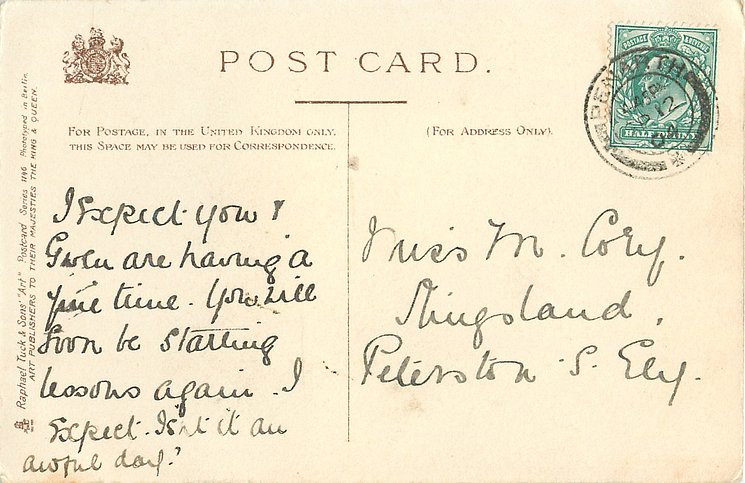 POST CARD.
FOR POSTAGE, IN THE UNITED KINGDOM ONLY,
THIS SPACE MAY BE USED FOR CORRESPONDENCE.
(FOR ADDRESS ONLY).
Raphael Tuck & Sons' "Art" Postcard Series 1196 Phototyped in Berlin
ART PUBLISHERS TO THEIR MAJESTIES THE KING & QUEEN.
I Expect you &
Gwen are having a
fine time. You will
soon be starting
lessons again. I
Expect. Isn't it an
awful day?
Miss M. Cory.
Kingsland.
Peterston S. Ely.
POSTAGE
HALFPENNY
PENARTH
12